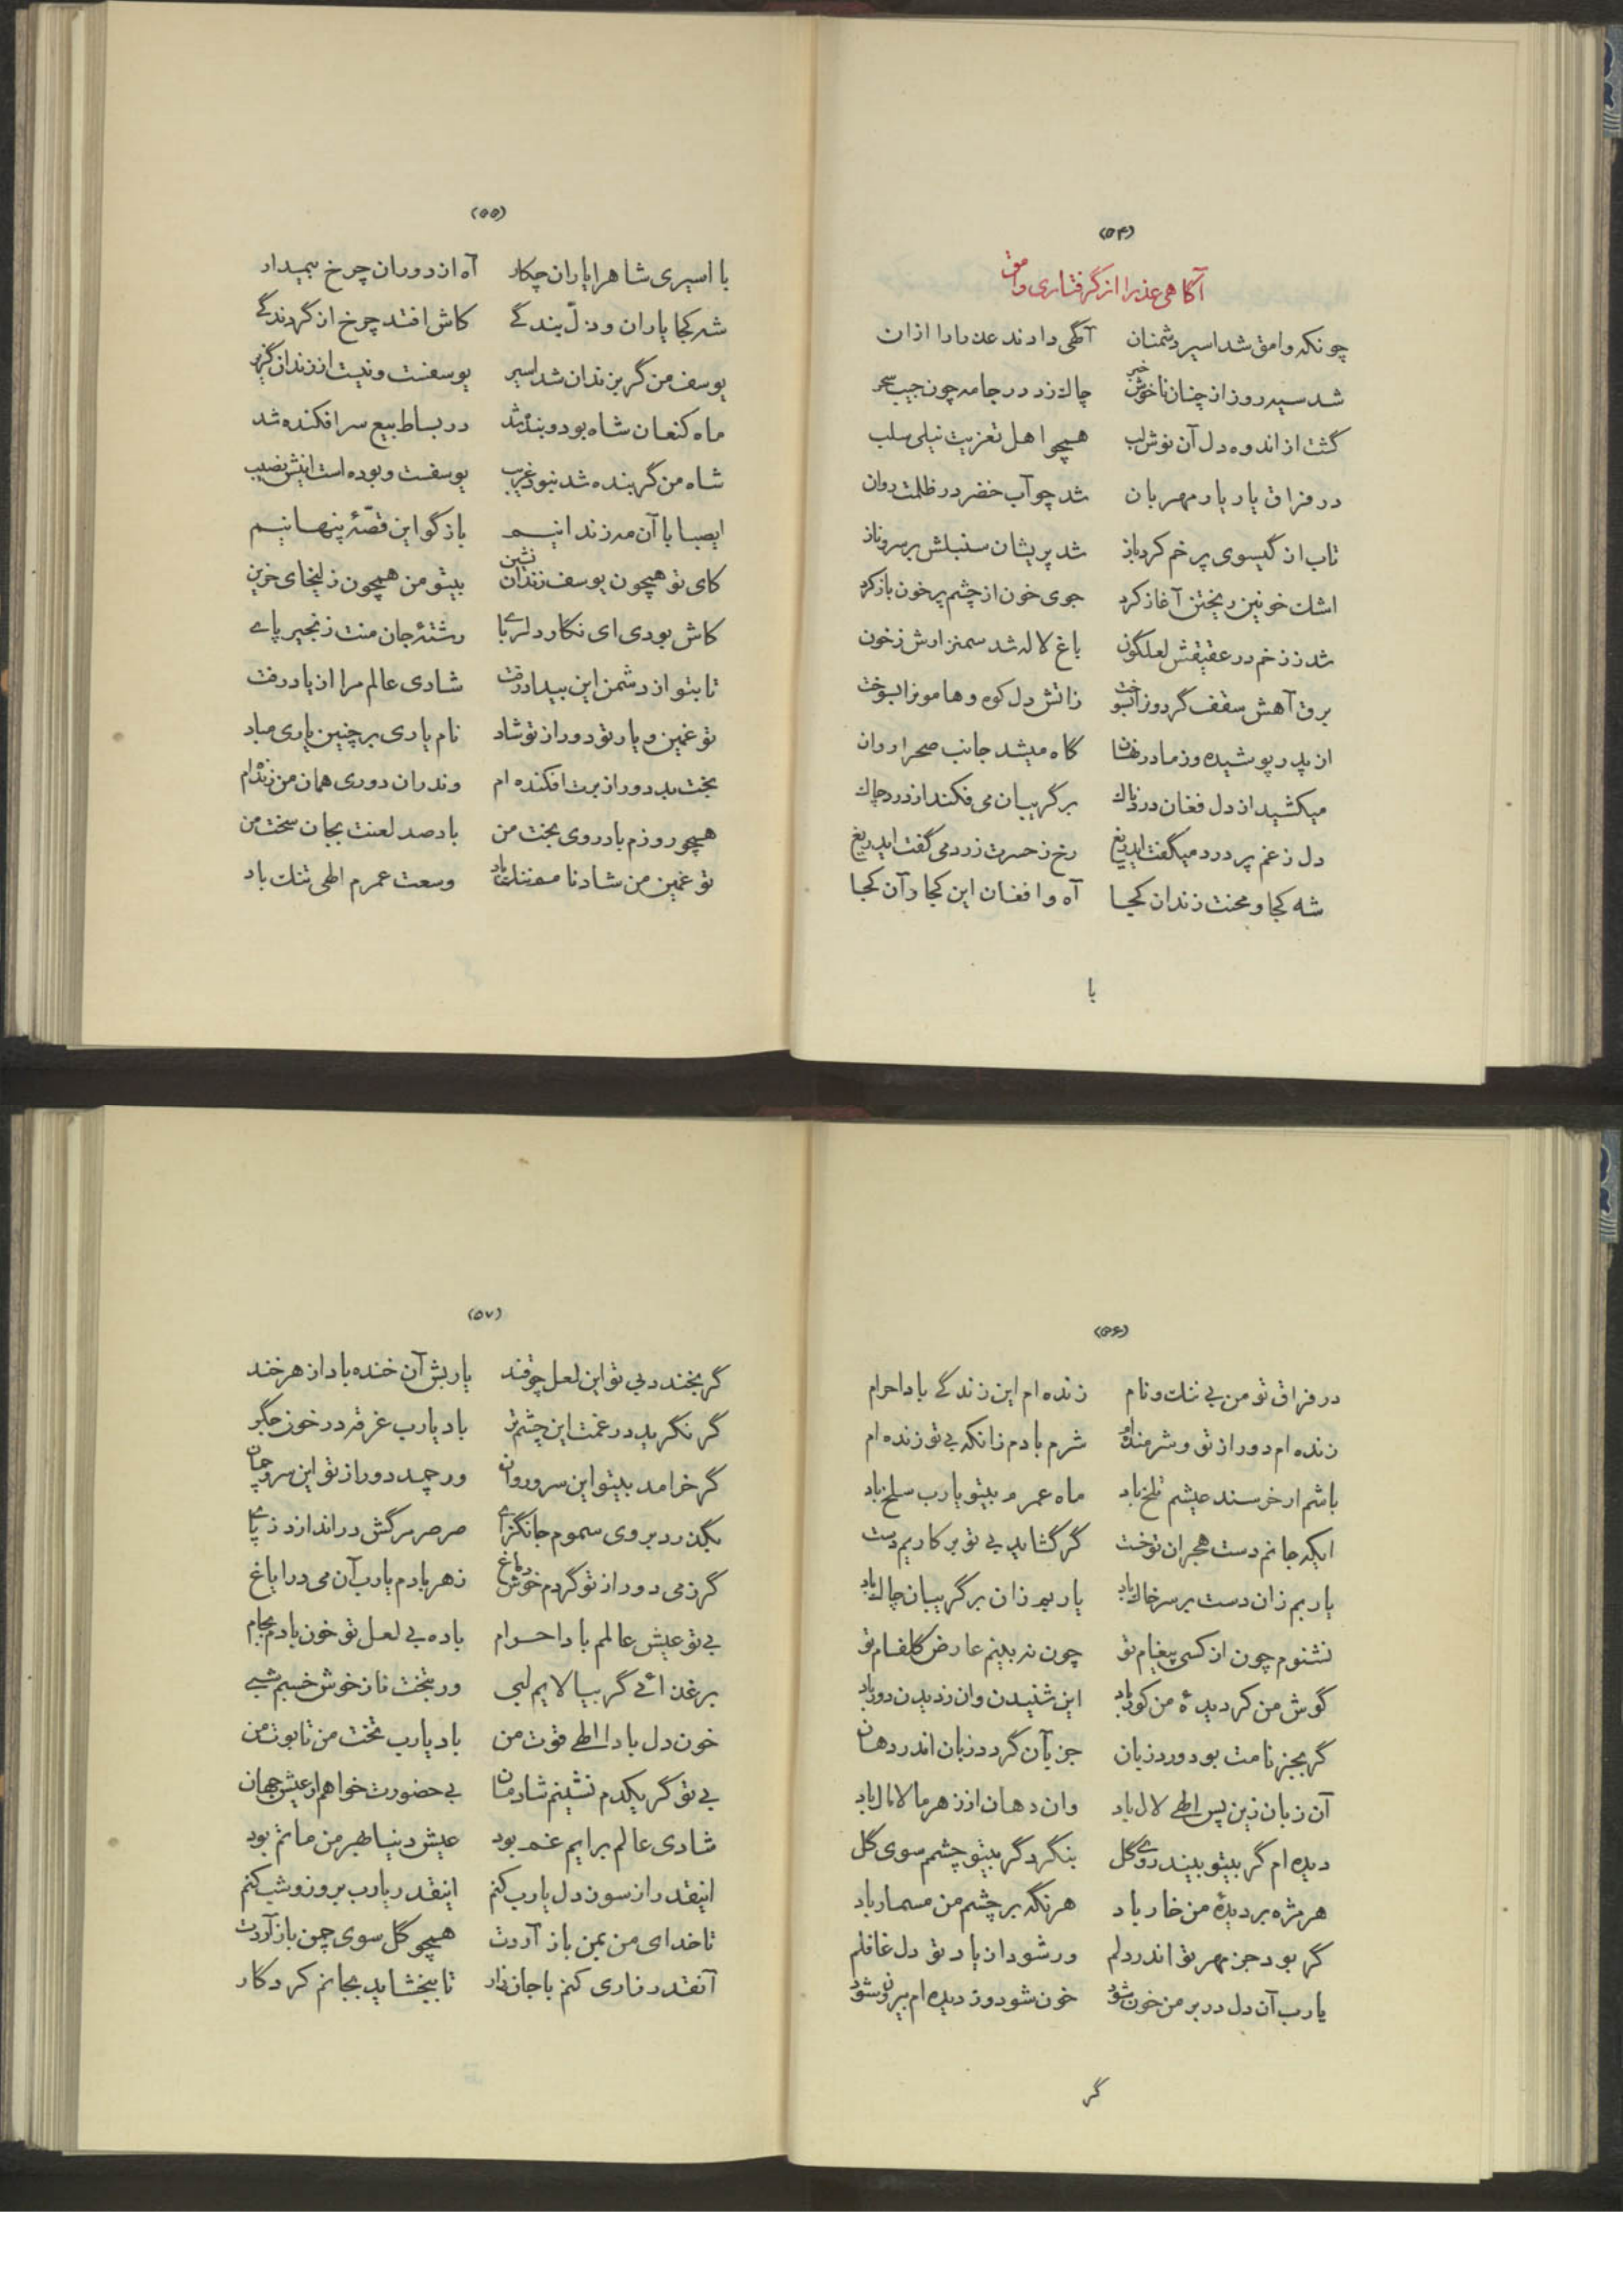 (۵۴)
آگاهی عذرا از گرفتاری وامق
چونکه وامق شد اسیر دشمنان آگهی دادند عذرا را ازان
شد سیه روز از چنان ناخوش خبر چاک زد در جامه چون جیب سحر
گشت از اندوه دل آن نوش لب همچو اهل تعزیت نیلی سلب
در فراق یار یار مهربان شد چو آب خضر در ظلمت روان
تاب از گیسوی پر خم کرد باز شد پریشان سنبلش بر سرو ناز
اشک خونین ریختن آغاز کرد جوی خون از چشم پر خون باز کرد
شد ز زخم در عقیقش لعلگون باغ لاله شد سمنزارش ز خون
برق آهش سقف گردونرا بسوخت ز اتش دل کوه و هامونرا بسوخت
از پدر پوشیده وز مادر نهان گاه میشد جانب صحرا روان
میکشید از دل فغان دردناک بر گریبان می فکند از درد چاک
دل ز غم پر درد میگفت ایدریغ رخ ز حسرت زرد می گفت ایدریغ
شه کجا و محنت زندان کجا آه و افغان این کجا و آن کجا
با
(۵۵)
با اسیری شاهرا یاران چکار آه از دوران چرخ بیمدار
شه کجا یاران و ذلّ بندگے کاش افتد چرخ از گردندگے
یوسف من گر بزندان شد اسیر یوسفست و نیست از زندان گزیر
ماه کنعان شاه بود و بنده شد در بساط بیع سر افکنده شد
شاه من گر بنده شد نبود غریب یوسفست و بوده است اینش نصیب
ایصبا با آن مه زندانیم باز گو این قصّهٔ پنهانیم
کای تو همچون یوسف زندان نشین بیتو من همچون زلیخای حزین
کاش بودی ای نگار دلربا رشتهٔ جان منت زنجیر پاے
تا بتو از دشمن این بیداد رفت شادی عالم مرا از یاد رفت
تو غمین و یار تو دور از تو شاد نام یاری بر چنین یاری مباد
بخت بد دور از برت افکنده ام وندران دوری همان من زنده ام
همچو روزم باد روی بخت من باد صد لعنت بجان سخت من
تو غمین من شاد نامم ننگ باد وسعت عمرم الهی تنگ باد
(۵۶)
در فراق تو من بی ننگ و نام زنده ام این زندگے بادا حرام
زنده ام دور از تو و شرمنده ام شرم بادم زانکه بی تو زنده ام
باشم ار خرسند عیشم تلخ باد ماه عمرم بیتو یارب سلخ باد
ایکه جانم دست هجران تو خست گر گشاید بی تو بر کاریم دست
یا ربم زان دست بر سر خاک باد یا ربم زان بر گریبان چاک باد
نشنوم چون از کسی پیغام تو چون نه بینم عارض گلفام تو
گوش من کر دیدهٔ من کور باد این شنیدن وان ز دیدن دور باد
گر بجز نامت بود ورد زبان جز بآن گردد زبان اندر دهان
آن زبان زین پس الهی لال باد وان دهان از زهر مالامال باد
دیده ام گر بیتو بیند روی گل بنگرد گر بیتو چشمم سوی گل
هر مژه بر دیدهٔ من خار باد هر نگه بر چشم من مسمار باد
گر بود جز مهر تو اندر دلم ور شود از یاد تو دل غافلم
یارب آن دل در بر من خون شود خون شود وز دیده ام بیرون شود
گر
(۵۷)
گر بخندد بی تو این لعل چو قند یاربش آن خنده باد از هر خند
گر نگرید در غمت این چشم تر باد یارب غرقه در خون جگر
گر خرامد بیتو این سرو روان ور چمد دور از تو این سرو چمان
بگذرد بر وی سموم جانگزاے صرصر مرگش در اندازد ز پاے
گر ز می دور از تو گردم خوش دماغ زهر بادم یارب آن می در ایاغ
بی تو عیش عالمم بادا حرام باده بی لعل تو خون بادم بجام
بر غذائے گر بیالایم لبی ور بتخت ناز خوش خسبم شبے
خون دل بادا الهی قوت من باد یارب تخت من تابوت من
بی تو گر یکدم نشینم شادمان بی حضورت خواهم ار عیش جهان
شادی عالم برایم غم بود عیش دنیا بهر من ماتم بود
اینقدر از سوز دل یارب کنم اینقدر یارب بروز و شب کنم
تا خدای من بمن باز آردت همچو گل سوی چمن باز آردت
آنقدر زاری کنم با جان زار تا ببخشاید بجانم کردگار